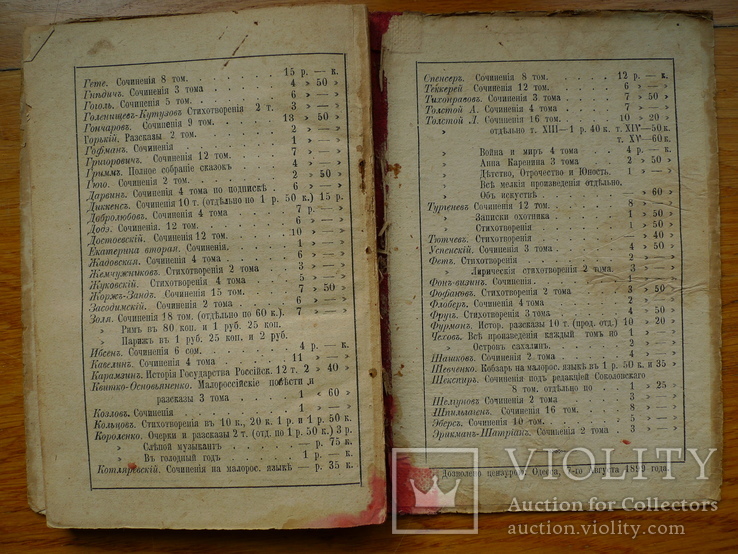 Гете. Сочиненія 8 том. 15 р. — к.
Гнѣдичъ. Сочиненія 3 тома 4 » 50 »
Гоголь. Сочиненія 5 том. 6 » — »
Голенищевъ-Кутузовъ Стихотворенія 2 т. 3 » — »
Гончаровъ. Сочиненія 9 том. 13 » 50 »
Горькій. Разсказы 2 том. 2 » — »
Гофманъ. Сочиненія 1 » — »
Григоровичъ. Сочиненія 12 том. 7 » — »
Гриммъ. Полное собраніе сказокъ 4 » — »
Гюго. Сочиненія 2 том. 2 » 50 »
Дарвинъ. Сочиненія 4 тома по подпискѣ 6 » — »
Диккенсъ. Сочиненія 10 т. (отдѣльно по 1 р. 50 к.) 15 р.
Добролюбовъ. Сочиненія 4 тома 7 р. — »
Додэ. Сочиненія. 12 том. 6 » — »
Достоевскій. Сочиненія 12 том. 10 » — »
Екатерина вторая. Сочиненія 1 » — »
Жадовская. Сочиненія 4 тома 6 » — »
Жемчужниковъ. Стихотворенія 2 тома 3 » — »
Жуковскій. Стихотворенія 4 тома 5 » — »
Жоржъ-Зандъ. Сочиненія 15 том. 7 » 50 »
Засодимскій. Сочиненія 2 тома 6 » — »
Золя. Сочиненія 18 том. (отдѣльно по 60 к.) 7 » — »
» Римъ в 80 коп. и 1 руб. 25 коп.
» Парижъ в 1 руб. 25 коп. и 2 руб.
Ибсенъ. Сочиненія 6 том. 4 р. — к.
Кавелинъ. Сочиненія 4 тома 11 » — »
Карамзинъ. Исторія Государства Россійск. 12 т. 2 » 40 »
Квитко-Основьяненко. Малороссійскіе повѣсти и
разсказы 3 тома 1 » 60 »
Козловъ. Сочиненія 1 » — »
Кольцовъ. Стихотворенія въ 10 к., 20 к. 1 и 1 р. 50 к.
Короленко. Очерки и разсказы 2 т. (отд. по 1 р. 50 к.) 3 р.
» Слѣпой музыкантъ — р. 75 к.
» Въ голодный годъ 1 р. — к.
Котляревскій. Сочиненія на малорос. языкѣ — р. 35 к.
Спенсеръ. Сочиненія 8 том. 12 р. — к.
Теккерей. Сочиненія 12 том. 6 » — »
Тихонравовъ. Сочиненія 3 тома 7 » 50 »
Толстой А. Сочиненія 4 тома 7 » — »
Толстой Л. Сочиненія 16 том. 10 » 20 »
отдѣльно т. XIII—1 р. 40 к. т. XIV—50 к.
т. XV—60 к.
» Война и миръ 4 тома 4 р. — к.
» Анна Каренина 3 тома 2 » 50 »
» Дѣтство, Отрочество и Юность. 1 » — »
» Всѣ мелкія произведенія отдѣльно.
Объ искуствѣ » 60 »
Тургеневъ Сочиненія 12 том. 8 » — »
» Записки охотника 1 » 50 »
» Стихотворенія 1 » 50 »
Тютчевъ. Стихотворенія » 40 »
Успенскій. Сочиненія 3 тома. 4 » 50 »
Фетъ. Стихотворенія 2 » — »
» Лирическія стихотворенія 2 тома. 3 » — »
Фонъ-визинъ. Сочиненія. 1 » — »
Фофановъ. Стихотворенія 2 тома 3 » 50 »
Флоберъ. Сочиненія 4 тома 2 » — »
Фругъ. Стихотворенія 3 тома. 4 » 50 »
Фурманъ. Истор. разсказы 10 т. (прод. отд.) 10 » 20 »
Чеховъ. Всѣ произведенія каждый томъ по 1 » — »
» Островъ сахалинъ. 2 » — »
Шашковъ. Сочиненія 2 тома. 4 » — »
Шевченко. Кобзарь на малорос. языкѣ в 1 р. 50 к. и 35
Шекспиръ. Сочиненія подъ редакціей Соколовскаго
8 том. отдѣльно по 1 » 25 »
Шелгуновъ. Сочиненія 2 тома 3 » — »
Шпильгагенъ. Сочиненія 16 том. 8 » — »
Эберсъ. Сочиненія 10 том. 5 » — »
Эркманъ-Шатріанъ. Сочиненія 2 тома 3 » — »
Дозволено цензурою. Одесса, 7-го Августа 1899 года.
VIOLITY
Auction for Collectors
auction.violity.com